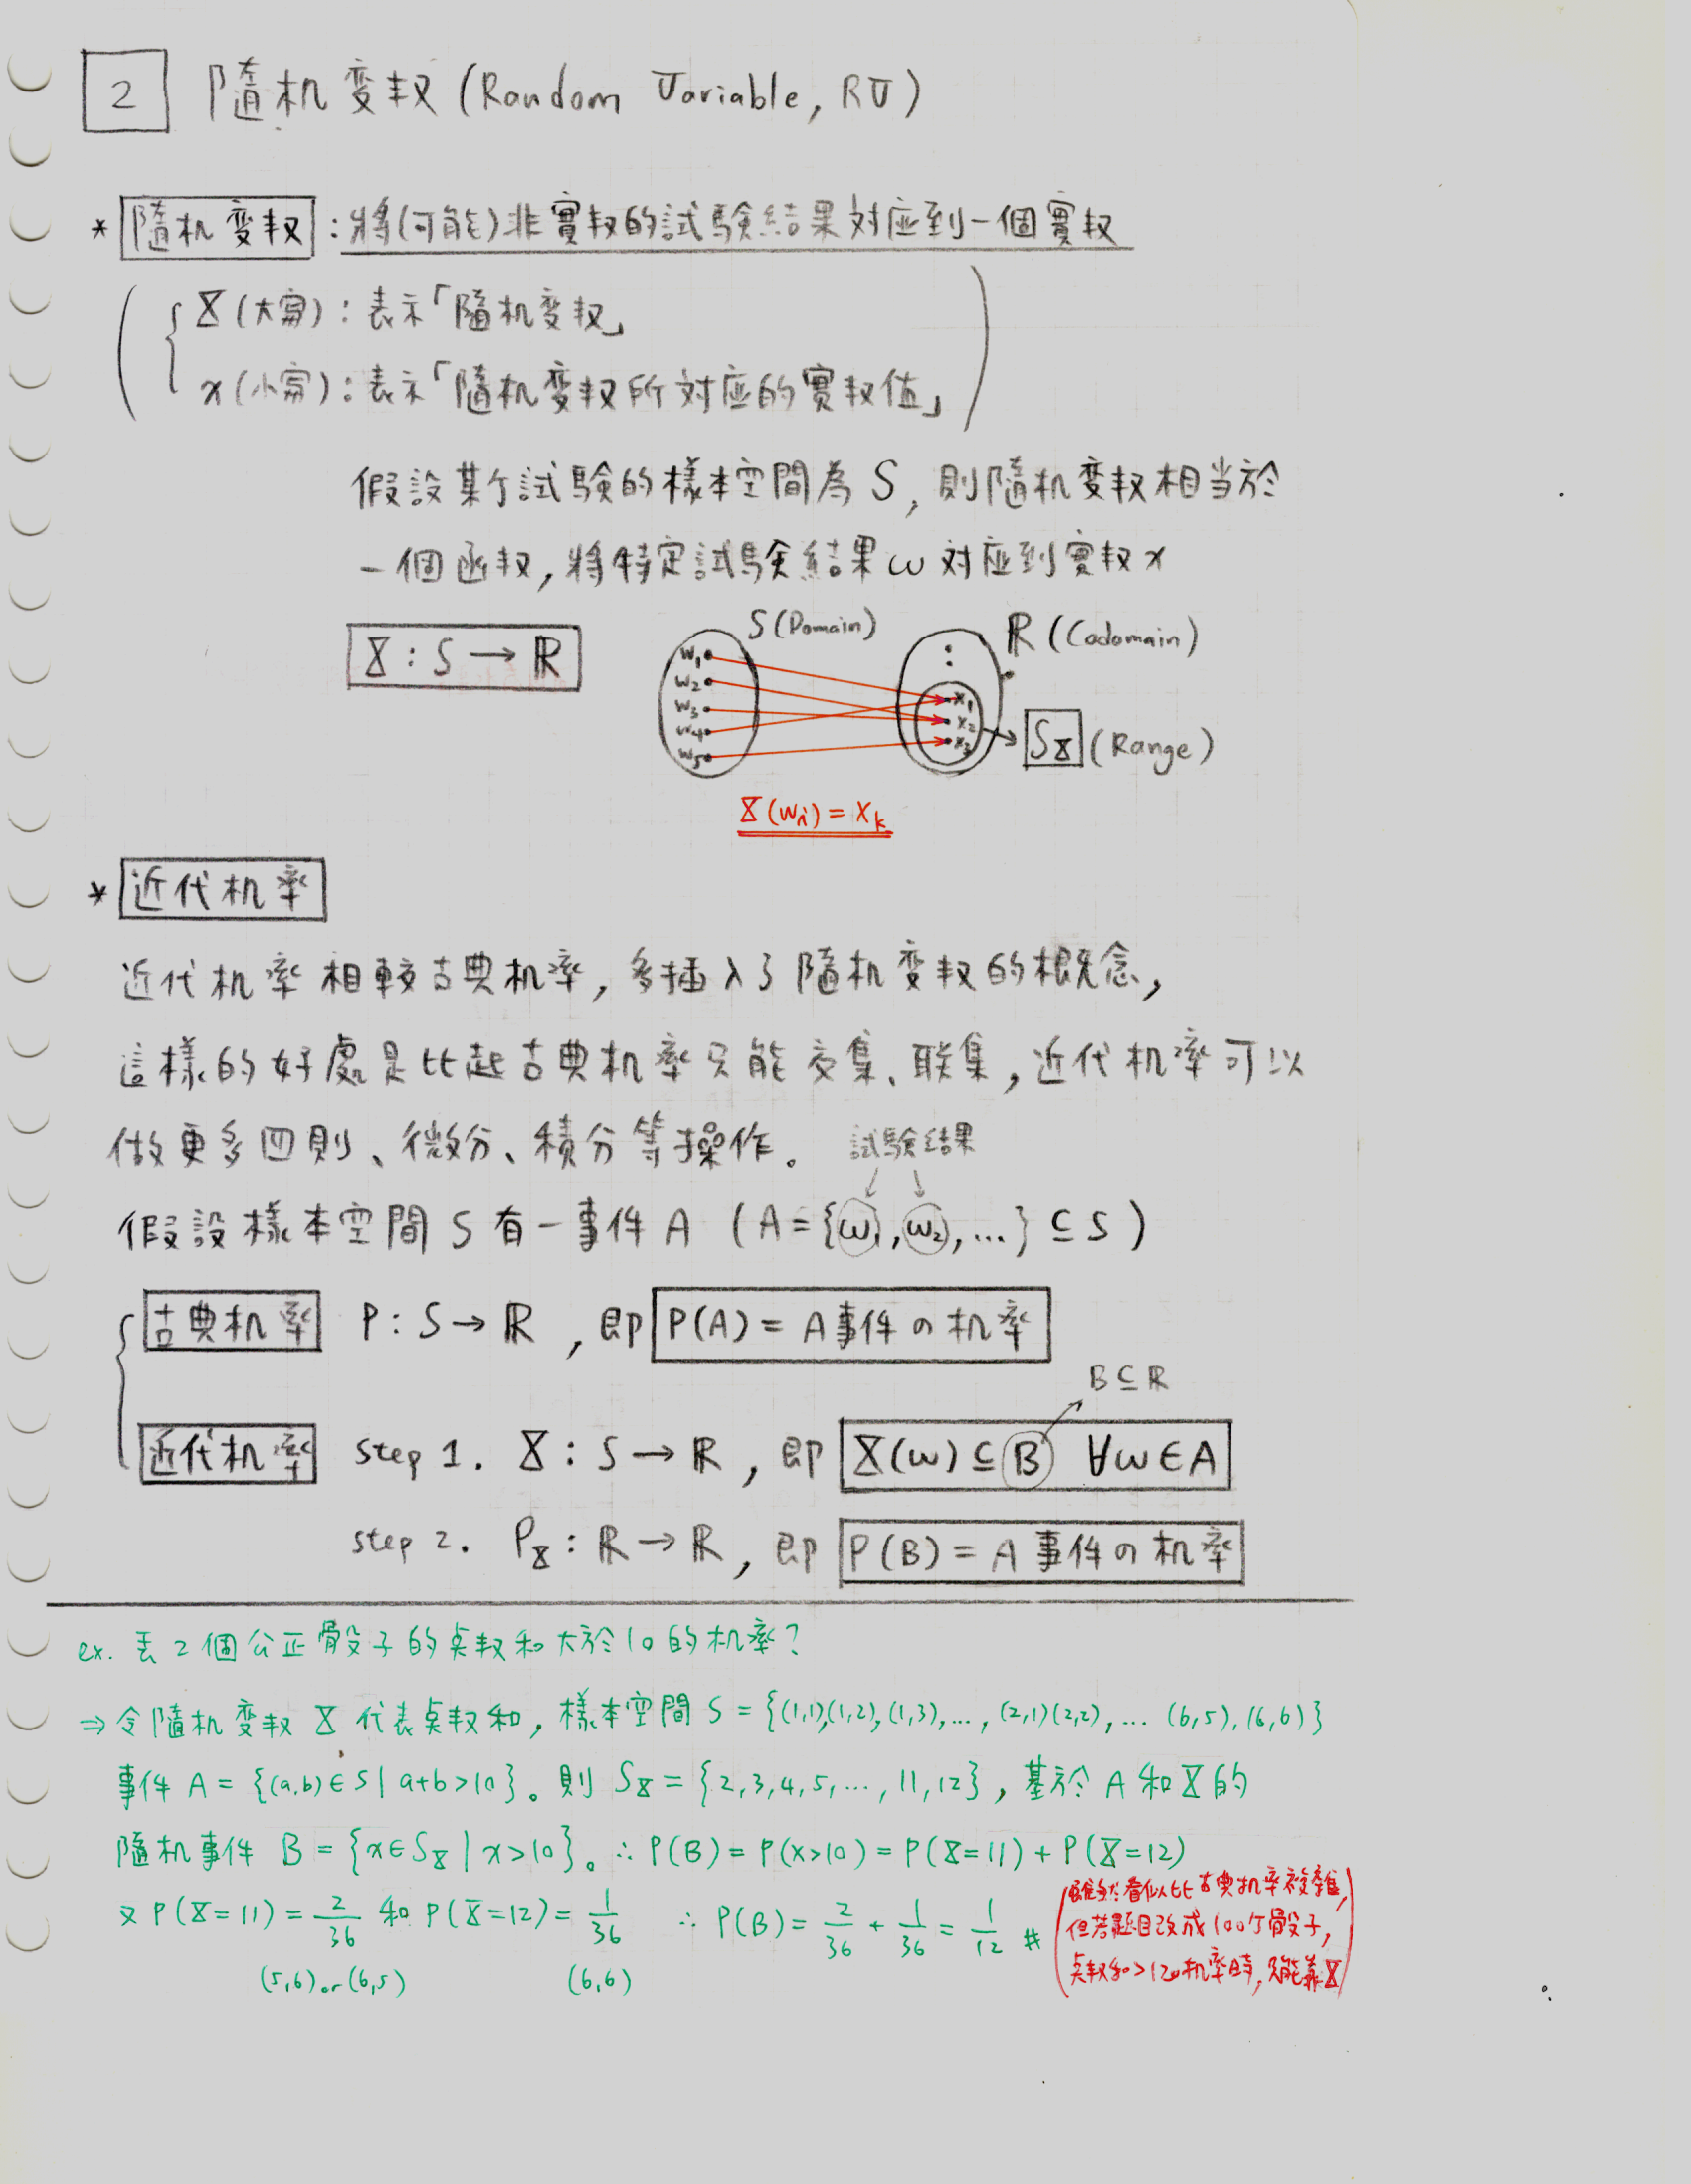 2 隨机变数 (Random Variable, RV)
* 隨机变数 : 將(可能)非實数的試驗結果対应到一個實数
X (大寫) : 表示「隨机变数」
x (小寫) : 表示「隨机变数所対应的實数值」
假設某个試驗的樣本空間為 S, 則隨机变数相当於
一個函数, 將特定試驗結果 ω 対应到實数 x
X : S → ℝ
S (Domain)
ℝ (Codomain)
w₁
w₂
w₃
w₄
w₅
x₁
x₂
x₃
S_X (Range)
X(wᵢ) = x_k
* 近代机率
近代机率相較古典机率, 多插入了隨机变数的概念,
這樣的好處是比起古典机率只能交集、联集, 近代机率可以
做更多四則、微分、積分等操作。
試驗結果
假設樣本空間 S 有一事件 A ( A = {ω₁, ω₂, ...} ⊆ S )
古典机率 P : S → ℝ , 即 P(A) = A 事件の机率
B ⊆ ℝ
近代机率 step 1. X : S → ℝ , 即 X(ω) ⊆ B ∀ω ∈ A
step 2. P_X : ℝ → ℝ , 即 P(B) = A 事件の机率
ex. 丟 2 個公正骰子的点数和大於 10 的机率?
⇒ 令隨机变数 X 代表点数和, 樣本空間 S = {(1,1),(1,2),(1,3),..., (2,1)(2,2), ... (6,5), (6,6)}
事件 A = {(a,b) ∈ S | a+b>10}。則 S_X = {2,3,4,5, ..., 11,12}, 基於 A 和 X 的
隨机事件 B = {x ∈ S_X | x>10}。∴ P(B) = P(X>10) = P(X=11) + P(X=12)
又 P(X=11) = 2/36 和 P(X=12) = 1/36 ∴ P(B) = 2/36 + 1/36 = 1/12 #
(5,6) or (6,5)
(6,6)
(雖然看似比古典机率複雜,
但若題目改成 100 个骰子,
点数和>120 机率時, 只能靠 X)